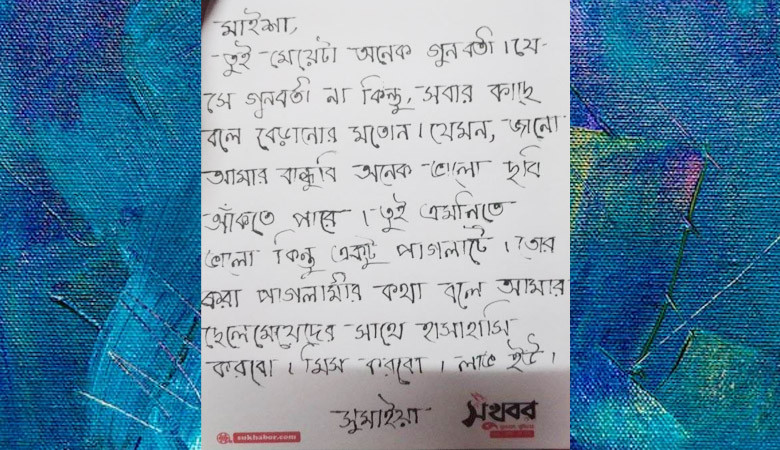 মাইশা,
তুই মেয়েটা অনেক গুনবতী। যে-
সে গুনবতী না কিন্তু, সবার কাছে
বলে বেড়ানোর মতোন। যেমন, জানো
আমার বান্ধুবি অনেক ভালো ছবি
আঁকতে পারে। তুই এমনিতে
ভালো কিন্তু একটু পাগলাটে। তোর
করা পাগলামীর কথা বলে আমার
ছেলেমেয়েদের সাথে হাসাহাসি
করবো। মিস করবো। লাভ ইউ।
সুমাইয়া
সুখবর
sukhabor.com